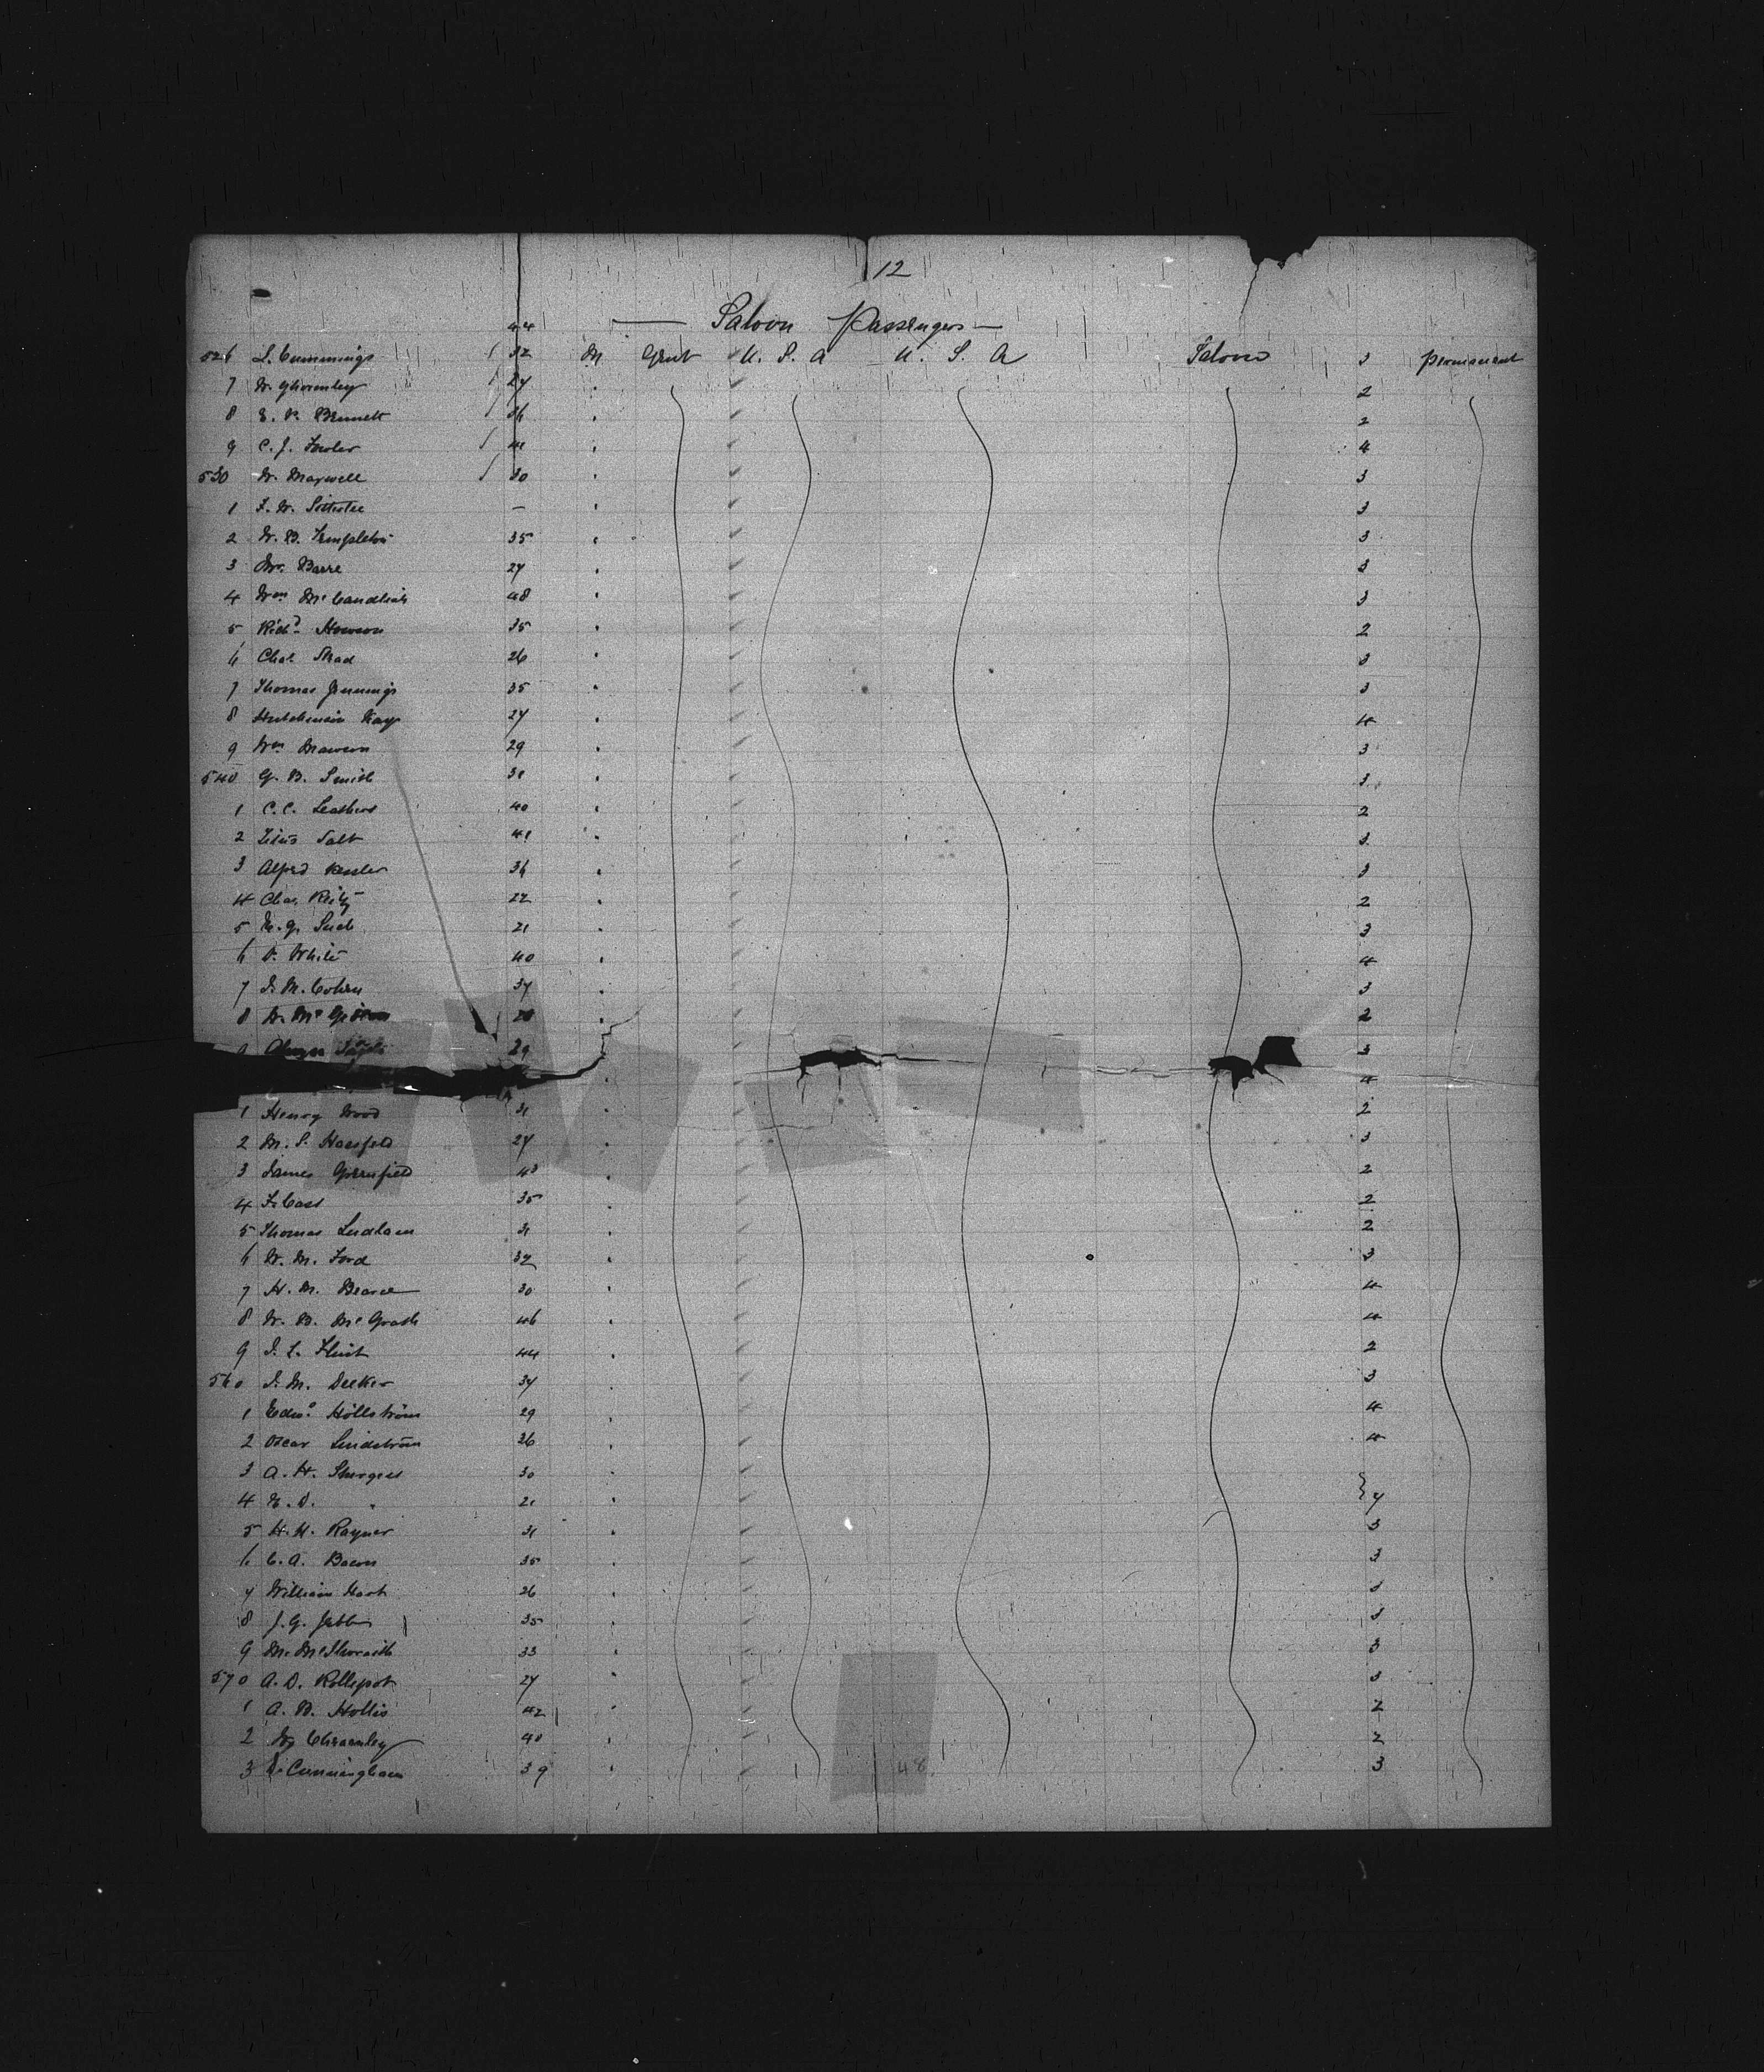 12
Saloon Passengers
44
526 L. Cummings 32 M Gent U. S. A U. S. A Saloon 3 permanent
7 W. Ghormley 27 2
8 E. P. Bennett 36 2
9 C. J. Fowler 41 4
530 W. Maxwell 30 3
1 F. W. – 3
2 W. B. Templeton 35 3
3 Barre 27 3
4 Wm McCandlish 48 3
5 Richd Howson 35 2
6 Chas. 26 3
7 Thomas Jennings 35 3
8 Hutchinson Kay 27 4
9 Wm Mawson 29 3
540 G. B. Smith 31 3
1 C. C. Leathers 40 2
2 Titus Salt 41 3
3 Alfred Kessler 36 3
4 Chas. Reitz 22 2
5 21 3
6 White 40 4
7 I. M. Cohen 37 3
8 28 2
29 3
4
1 Henry Wood 31 2
2 M. S. 27 3
3 James Greenfield 43 2
4 F. Cass 35 2
5 Thomas Ludlam 31 2
6 W. M. Ford 32 3
7 H. M. Bearce 30 4
8 W. B. McGrath 46 4
9 Flint 44 2
560 I. M. Decker 37 3
1 Edwd Höllström 29 4
2 Oscar Lindström 26 4
3 A. H. Sturges 30
4 E. D. " 21 7
5 H. H. Rayner 31 3
6 C. A. Bacon 35 3
7 William Hart 26 3
8 J. G. 35 3
9 M. McIlwraith 33 3
570 A. D. 27 3
1 A. B. Hollis 42 2
2 40 2
3 Cunningham 39 3
48